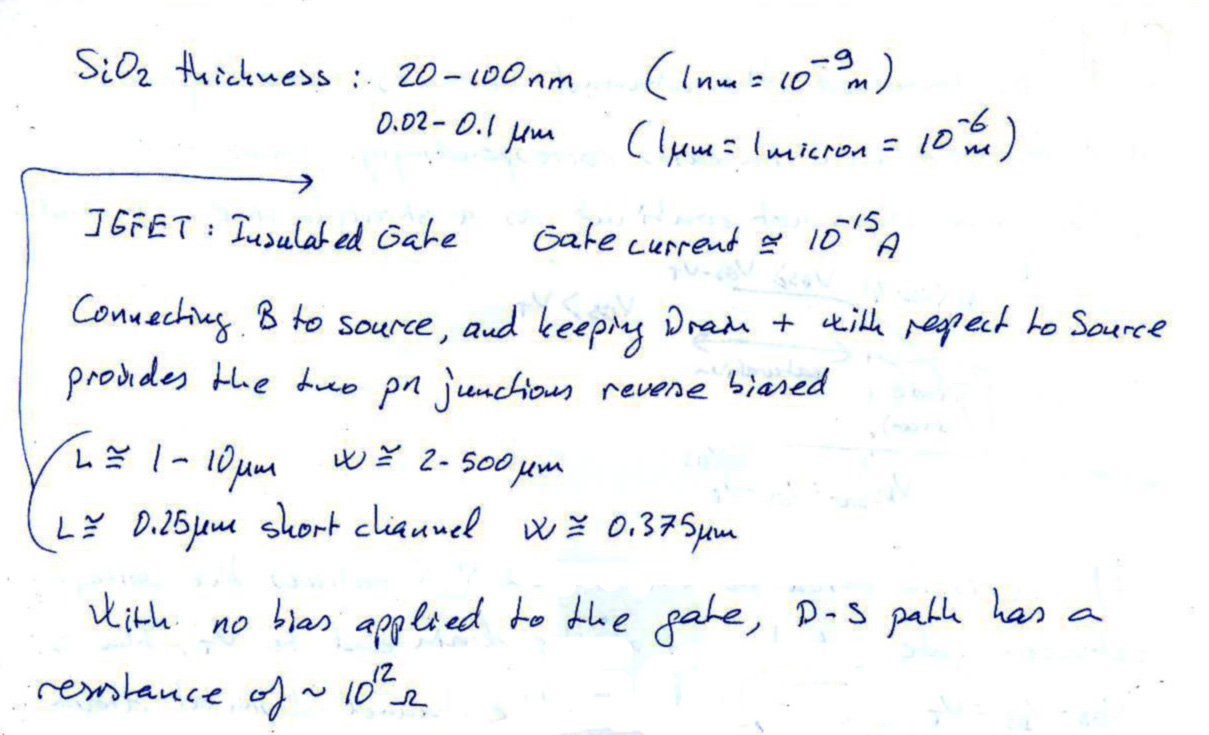 SiO2 thickness : 20-100nm (1nm = 10^-9 m)
0.02-0.1 μm (1μm = 1micron = 10^-6 m)
IGFET : Insulated Gate Gate current ≅ 10^-15 A
Connecting B to source, and keeping Drain + with respect to Source
provides the two pn junctions reverse biased
L ≅ 1-10μm W ≅ 2-500μm
L ≅ 0.25μm short channel W ≅ 0.375μm
With no bias applied to the gate, D-S path has a
resistance of ~ 10^12 Ω